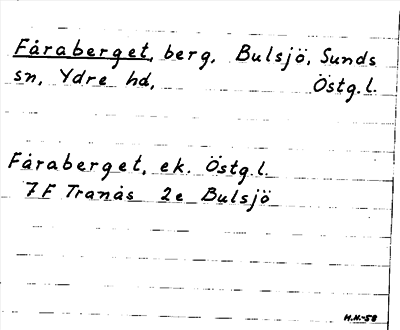 Fåraberget, berg, Bulsjö, Sunds
sn, Ydre hd, Östg.l.
Fåraberget, ek. Östg.l.
7F Tranås 2e Bulsjö
H.N.-58